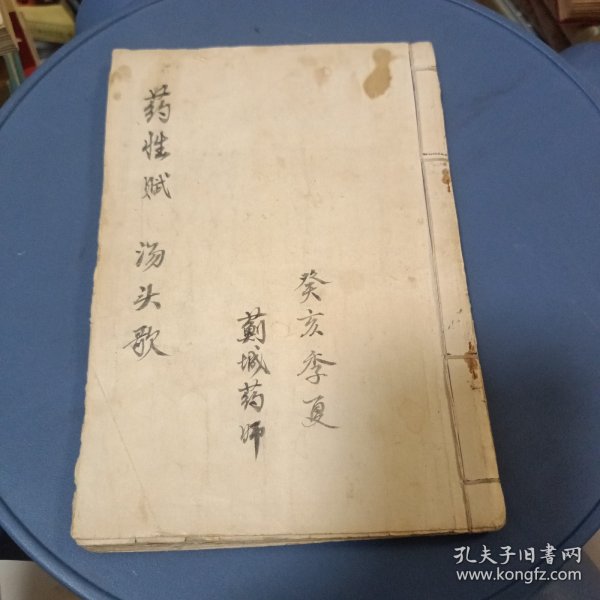 药性赋 汤头歌
癸亥季夏
蓟城药师
孔夫子旧書网
www.kongfz.com